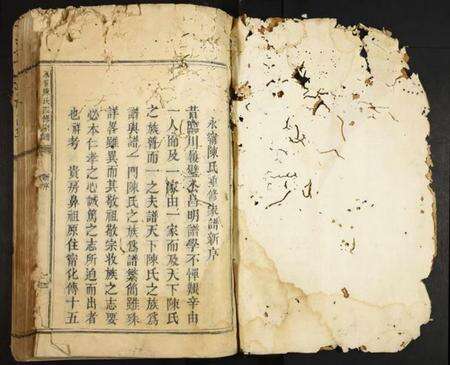 永甯陳氏重修家譜新序
昔臨川嚴璧永昌明譜學不憚艱辛由
一人而及一家由一家而及天下陳氏
之族普而一之夫譜天下陳氏之族為
譜與譜一門陳氏之族為譜繁簡雖殊
詳畧雖異而其敬祖敬宗收族之志要
必本仁孝之心誠篤之志所迫而出者
也謹考貴房鼻祖原住甯化傳十五
永甯陳氏